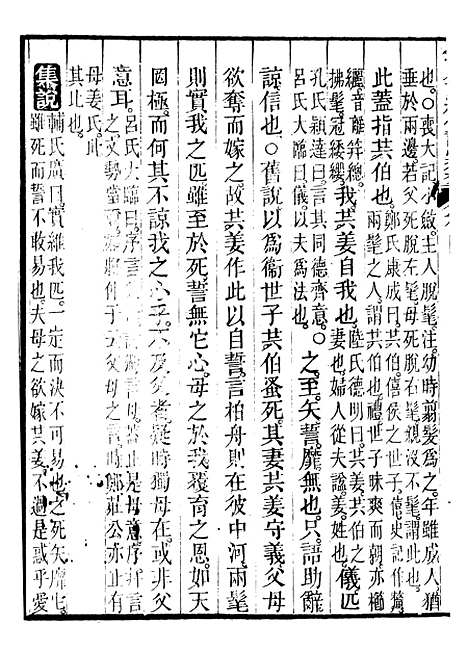 也○喪大記小斂主人脫髦注幼時翦髮爲之年雖成人猶
垂於兩邊若父死脫左髦母死脫右髦親沒不髦此
此蓋指共伯也鄭氏康成曰共伯僖侯之世子僖史記作釐
兩髦之人謂共伯也禮世子昧爽而朝亦櫛
纚笄總
拂髦冠緌纓我共姜自我也陸氏德明曰共姜共伯
妻也婦人從夫諡姜姓也儀匹
孔氏穎達曰言其同德齊意
呂氏大臨曰儀以夫爲法也○之至矢誓靡無也只語助辭
諒信也○舊說以爲衞世子共伯蚤死其妻共姜守義父母
欲奪而嫁之故共姜作此以自誓言柏舟則在彼中河兩髦
則實我之匹雖至於死誓無它心母之於我覆育之恩如天
罔極而何其不諒我之心乎不及父者疑時獨母在或非父
意耳呂氏大臨曰序言
母姜氏此
其比也
集說輔氏廣曰實維我匹一定而決不可易也之死矢靡它
雖死而誓不敢易也夫母之欲嫁共姜不過是惑乎愛